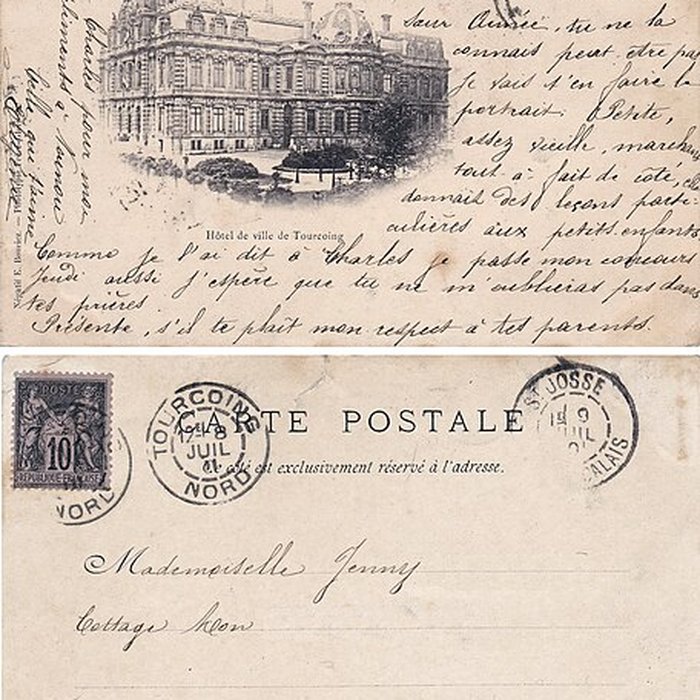 Sœur Aimée, tu ne la
connais peut être pas
Je vais t'en faire le
portrait. Petite,
assez vieille, marchant
tout à fait de côté, et
donnait des leçons parti-
culières aux petits enfants
Hôtel de ville de Tourcoing
Comme je l'ai dit à Charles je passe mon concours
Jeudi aussi j'espère que tu ne m'oublieras pas dans
tes prières.
Présente, s'il te plaît mon respect à tes parents.
Charles pour moi
Celle qui t'aime
RÉPUBLIQUE FRANÇAISE
POSTE
10
NORD
TOURCOING
8
JUIL
NORD
CARTE POSTALE
Ce côté est exclusivement réservé à l'adresse.
ST JOSSE
9
JUIL
CALAIS
Mademoiselle Jenny
Cottage Mon